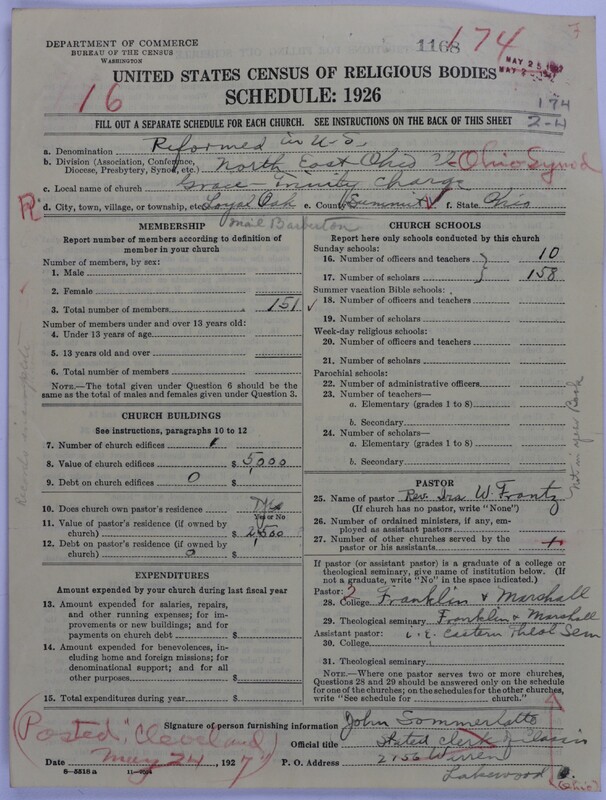 DEPARTMENT OF COMMERCE
BUREAU OF THE CENSUS
WASHINGTON
1168
174
MAY 25
16
UNITED STATES CENSUS OF RELIGIOUS BODIES
SCHEDULE: 1926
174
2-4
FILL OUT A SEPARATE SCHEDULE FOR EACH CHURCH. SEE INSTRUCTIONS ON THE BACK OF THIS SHEET
a. Denomination Reformed in U.S.
b. Division (Association, Conference, Diocese, Presbytery, Synod, etc.) North East Ohio Ohio Synod
c. Local name of church Grace - Trinity Charge
d. City, town, village, or township, etc. Loyal Oak e. County Summit f. State Ohio
Mail Barberton
MEMBERSHIP
Report number of members according to definition of
member in your church
Number of members, by sex:
1. Male
2. Female
3. Total number of members 151
Number of members under and over 13 years old:
4. Under 13 years of age
5. 13 years old and over
6. Total number of members
NOTE.—The total given under Question 6 should be the
same as the total of males and females given under Question 3.
CHURCH BUILDINGS
See instructions, paragraphs 10 to 12
7. Number of church edifices 1
8. Value of church edifices $ 5,000
9. Debt on church edifices 0 $
10. Does church own pastor's residence Yes
Yes or No
11. Value of pastor's residence (if owned by
church) $ 2,500
12. Debt on pastor's residence (if owned by
church) 0 $
EXPENDITURES
Amount expended by your church during last fiscal year
13. Amount expended for salaries, repairs,
and other running expenses; for im-
provements or new buildings; and for
payments on church debt $
14. Amount expended for benevolences, in-
cluding home and foreign missions; for
denominational support; and for all
other purposes $
15. Total expenditures during year $
CHURCH SCHOOLS
Report here only schools conducted by this church
Sunday schools:
16. Number of officers and teachers 10
17. Number of scholars 158
Summer vacation Bible schools:
18. Number of officers and teachers
19. Number of scholars
Week-day religious schools:
20. Number of officers and teachers
21. Number of scholars
Parochial schools:
22. Number of administrative officers
23. Number of teachers—
a. Elementary (grades 1 to 8)
b. Secondary
24. Number of scholars—
a. Elementary (grades 1 to 8)
b. Secondary
Not in year Book
PASTOR
25. Name of pastor Rev. Ira W. Frantz
(If church has no pastor, write "None")
26. Number of ordained ministers, if any, em-
ployed as assistant pastors
27. Number of other churches served by the
pastor or his assistants 1
If pastor (or assistant pastor) is a graduate of a college or
theological seminary, give name of institution below. (If
not a graduate, write "No" in the space indicated.)
Pastor: 2
28. College Franklin & Marshall
29. Theological seminary Franklin & Marshall
Assistant pastor: i.e. Eastern Theol Sem
30. College
31. Theological seminary
NOTE.—Where one pastor serves two or more churches,
Questions 28 and 29 should be answered only on the schedule
for one of the churches; on the schedules for the other churches,
write "See schedule for church."
Signature of person furnishing information John Sommerlatte
Official title Stated clerk of Classis
Posted, Cleveland
Date May 24, 1927 P. O. Address 2156 Warren
Lakewood
(Ohio)
8—5518 a